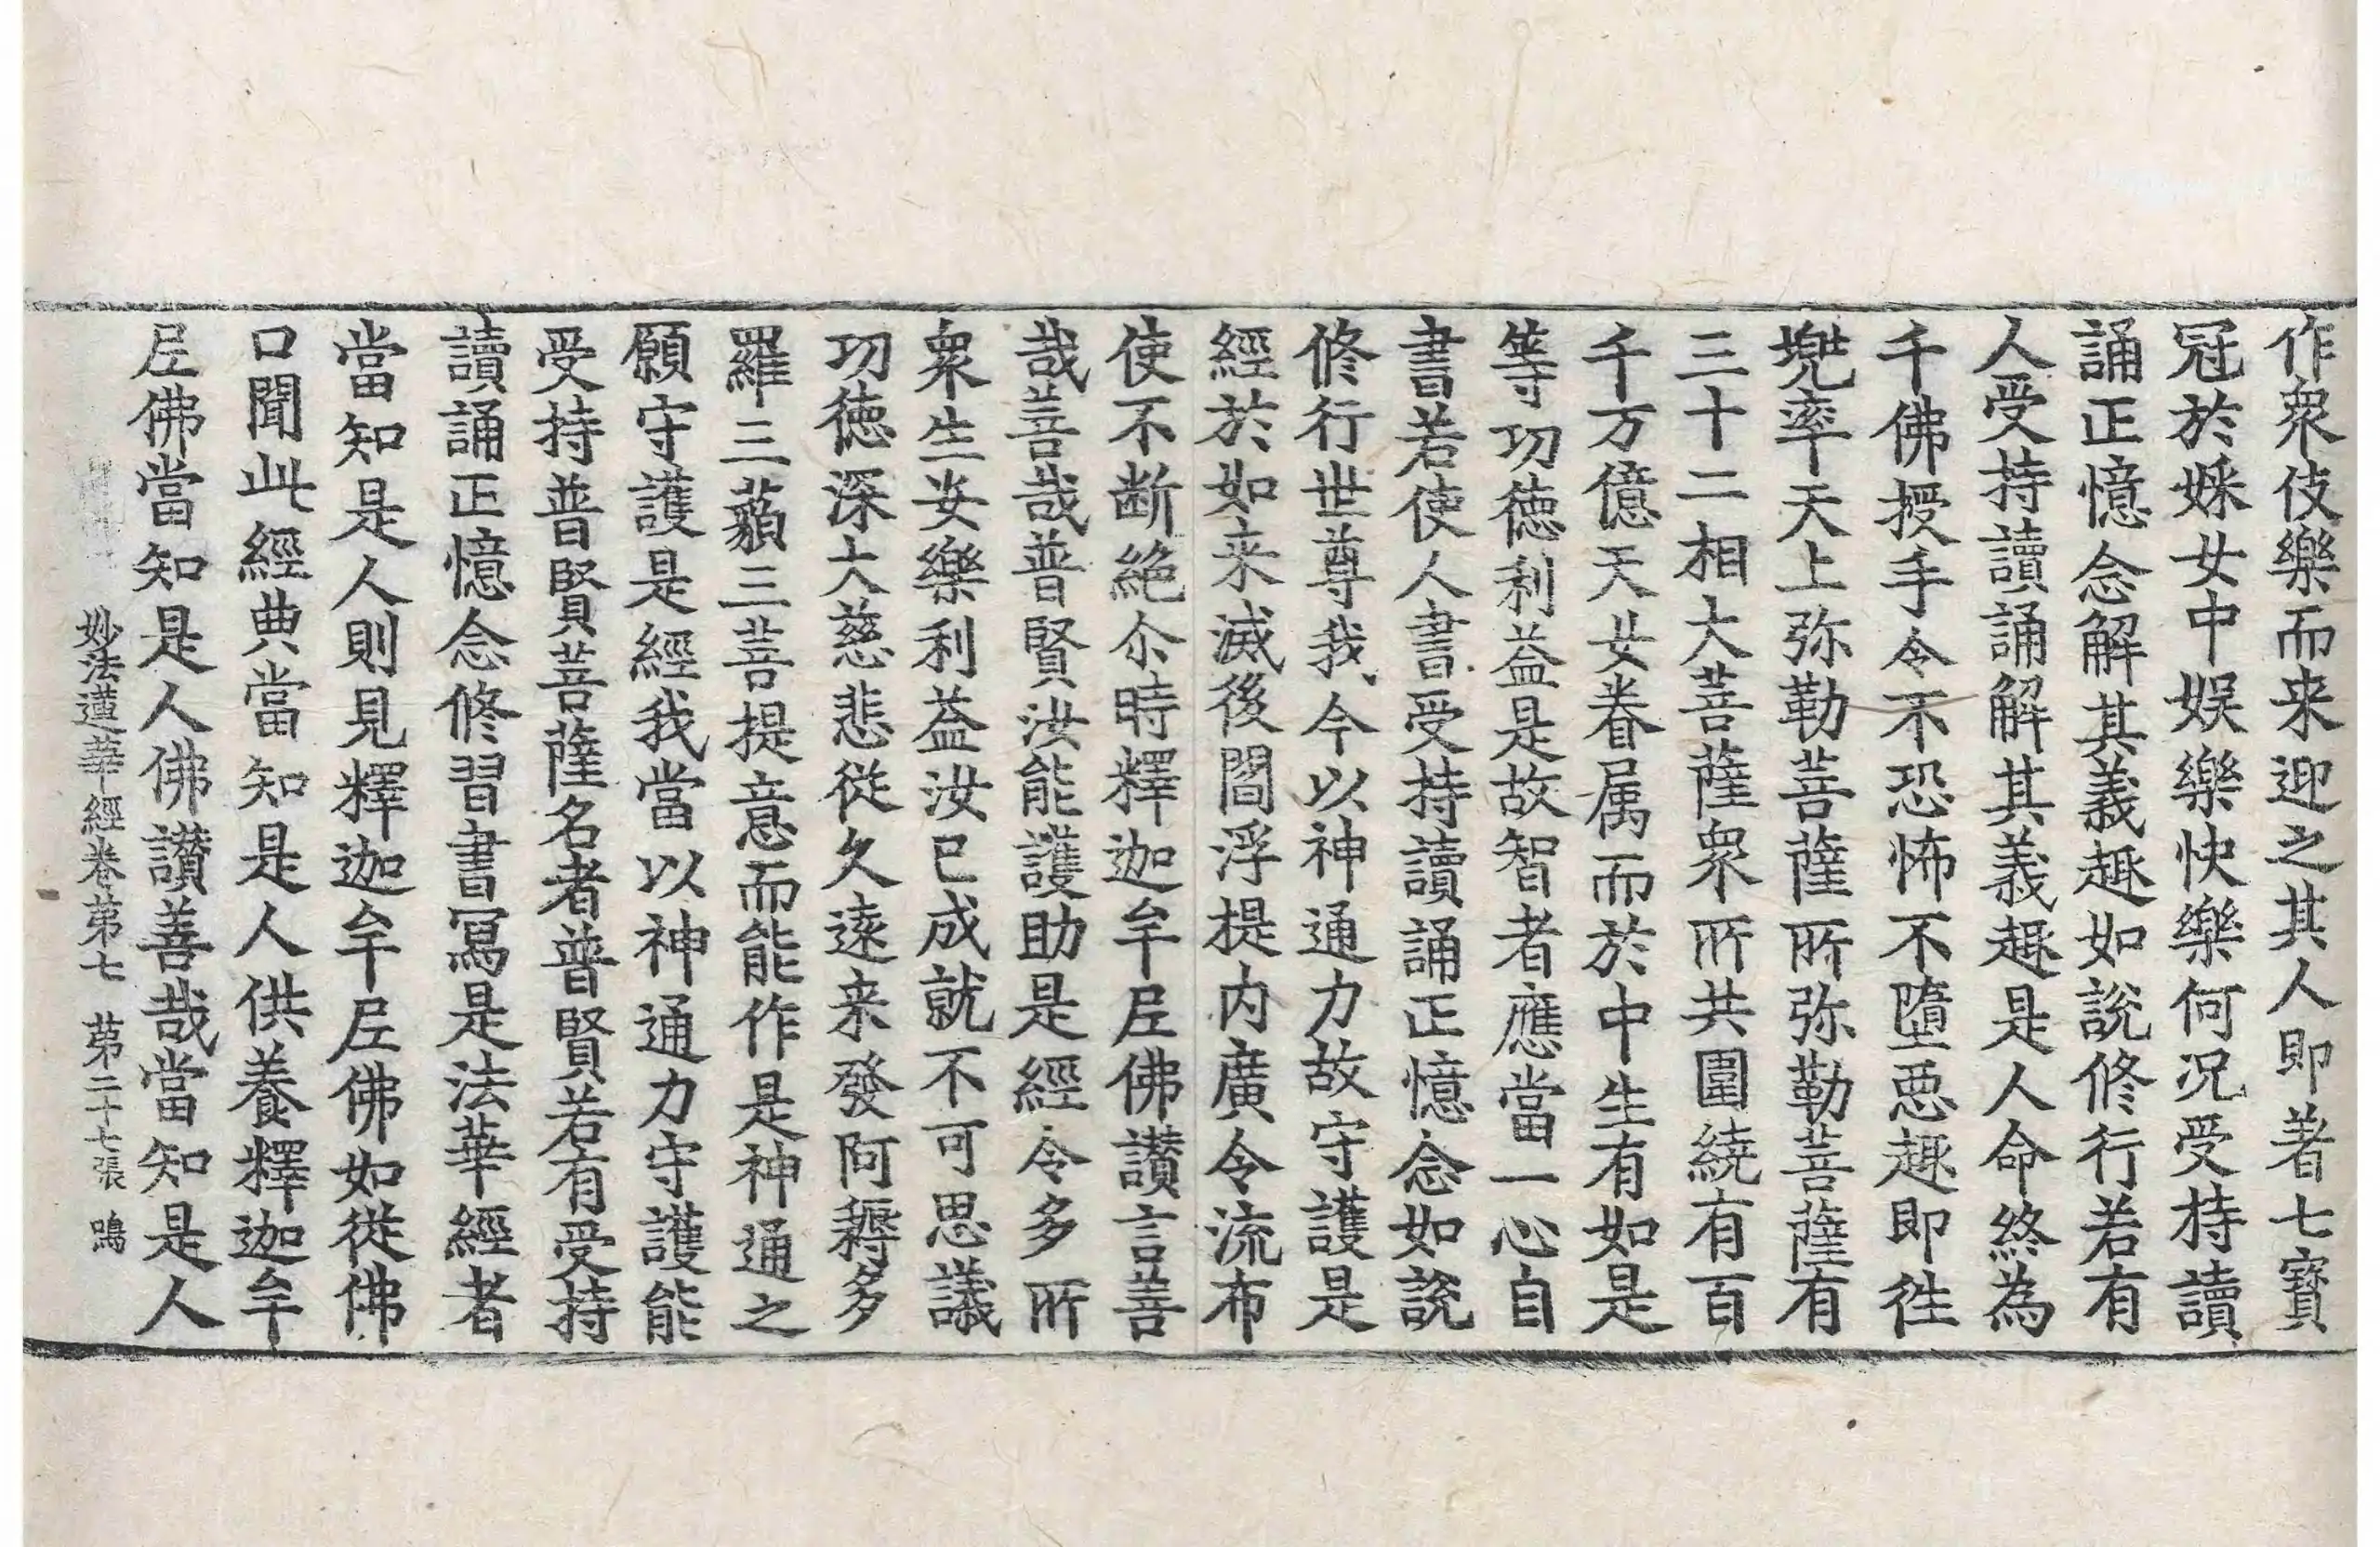 作衆伎樂而来迎之其人即著七寶
冠於婇女中娱樂快樂何况受持讀
誦正憶念解其義趣如說修行若有
人受持讀誦解其義趣是人命終為
千佛授手令不恐怖不墮惡趣即徃
兠率天上弥勒菩薩所弥勒菩薩有
三十二相大菩薩衆所共圍繞有百
千万億天女眷属而於中生有如是
等功德利益是故智者應當一心自
書若使人書受持讀誦正憶念如說
修行世尊我今以神通力故守護是
經於如来滅後閻浮提内廣令流布
使不断絕尒時釋迦牟尼佛讃言善
哉善哉普賢汝能護助是經令多所
衆生安樂利益汝已成就不可思議
功德深大慈悲從久遠来發阿耨多
羅三藐三菩提意而能作是神通之
願守護是經我當以神通力守護能
受持普賢菩薩名者普賢若有受持
讀誦正憶念修習書寫是法華經者
當知是人則見釋迦牟尼佛如從佛
口聞此經典當知是人供養釋迦牟
尼佛當知是人佛讃善哉當知是人
妙法蓮華經卷第七 第二十七張 鳴